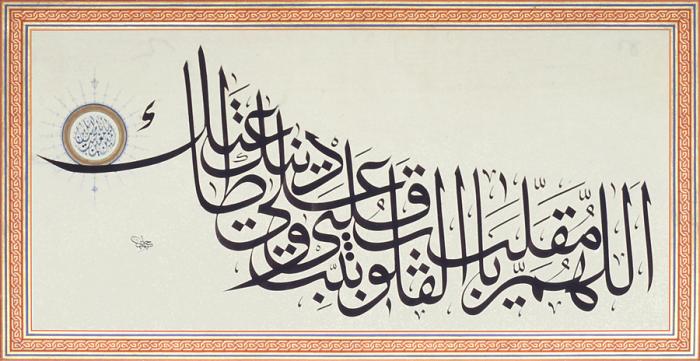 اللهم يا مقلب القلوب ثبت قلبي على دينك وعلى طاعتك